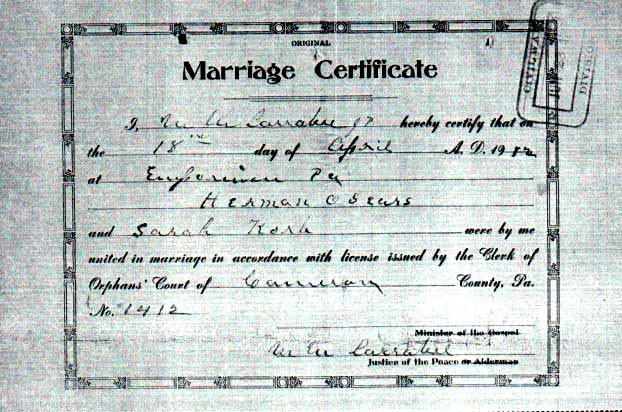 ORIGINAL
Marriage Certificate
I, M M Larrabee JP hereby certify that on
the 18 day of April A. D. 19
at Emporium Pa
Herman O Sears
and Sarah Kosh were by me
united in marriage in accordance with license issued by the Clerk of
Orphans' Court of Cameron County, Pa.
No. 1412
Minister of the Gospel
M M Larrabee
Justice of the Peace or Alderman